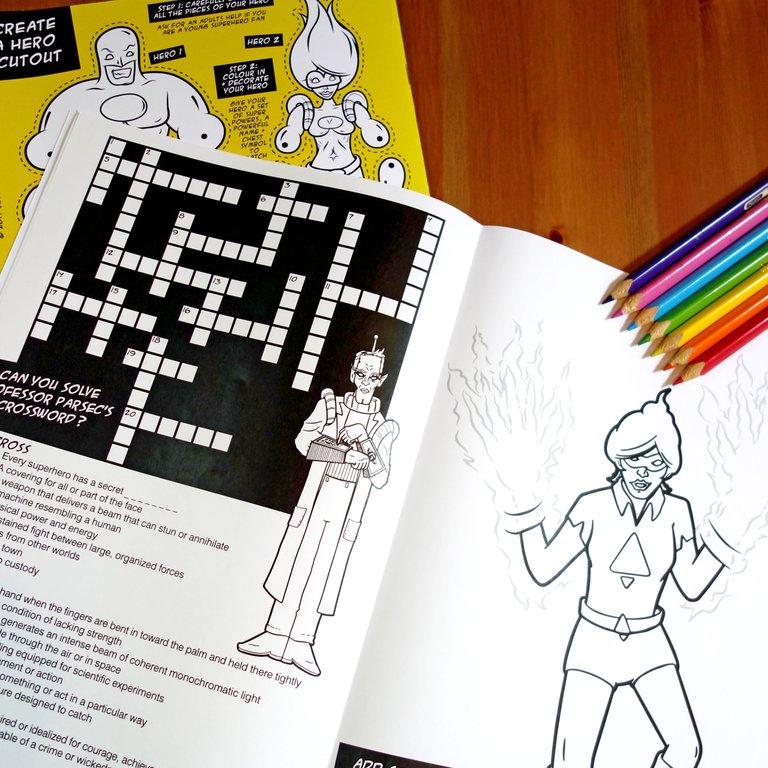 CREATE
A HERO
CUTOUT
STEP 1: CAREFULLY
ALL THE PIECES OF YOUR HERO
ASK FOR AN ADULTS HELP IF YOU
ARE A YOUNG SUPERHERO FAN
HERO 1
HERO 2
STEP 2:
COLOUR IN
+ DECORATE
YOUR HERO
GIVE YOUR
HERO A SET
OF SUPER
POWERS, A
POWERFUL
NAME +
CHEST
SYMBOL
TO
1
2
3
4
5
6
7
8
9
10
11
12
13
14
15
16
17
18
19
20
CAN YOU SOLVE
PROFESSOR PARSEC'S
CROSSWORD?
Every superhero has a secret _ _ _ _ _ _ _ _
A covering for all or part of the face
weapon that delivers a beam that can stun or annihilate
machine resembling a human
physical power and energy
sustained fight between large, organized forces
from other worlds
town
custody
hand when the fingers are bent in toward the palm and held there tightly
condition of lacking strength
generates an intense beam of coherent monochromatic light
through the air or in space
equipped for scientific experiments
or action
something or act in a particular way
designed to catch
or idealized for courage,
of a crime or